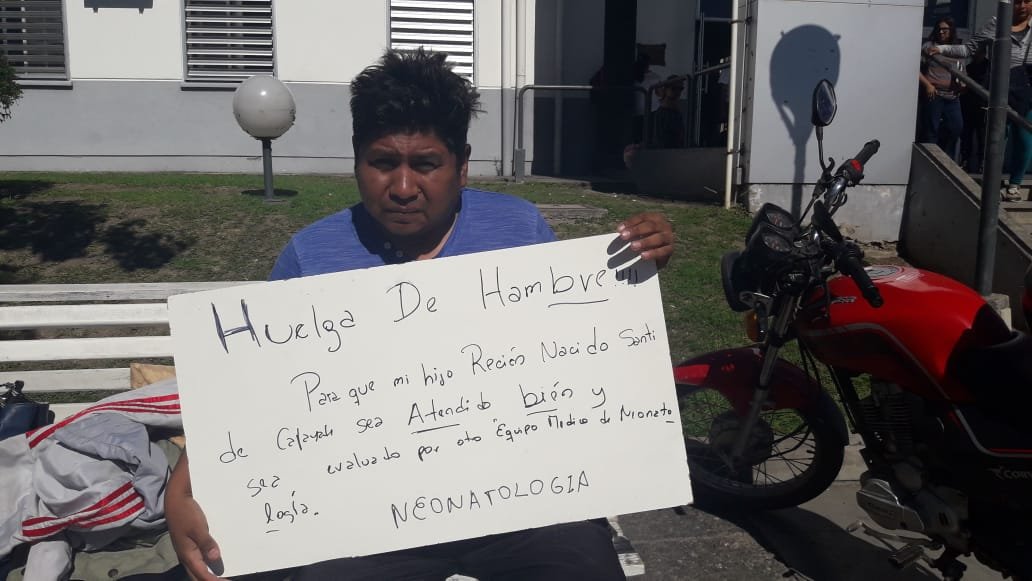 Huelga De Hambre!!!!
Para que mi hijo Recién Nacido Santi
de Cafayate sea Atendido bién y
sea evaluado por oto "Equipo Medico de Neonato
logía.
NEONATOLOGIA